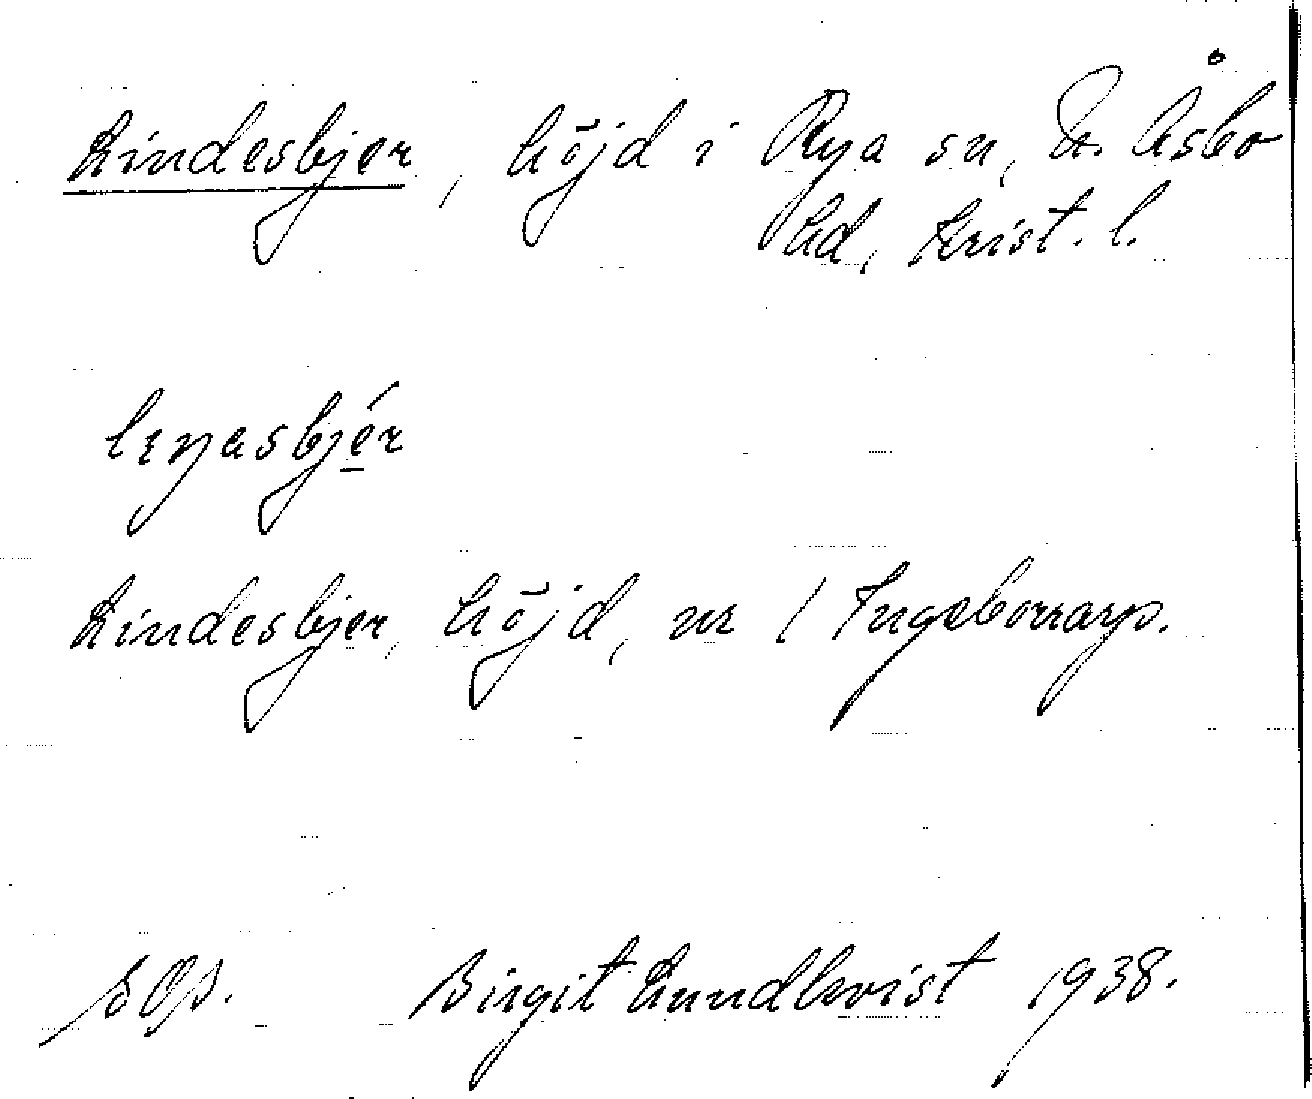 Lindesbjer, höjd i Rya sn, N. Åsbo
hd, Krist. l.
lɛŋasbjér
Lindesbjer, höjd, nr 1 Ingeborrarp.
Birgit Lundkvist 1938.